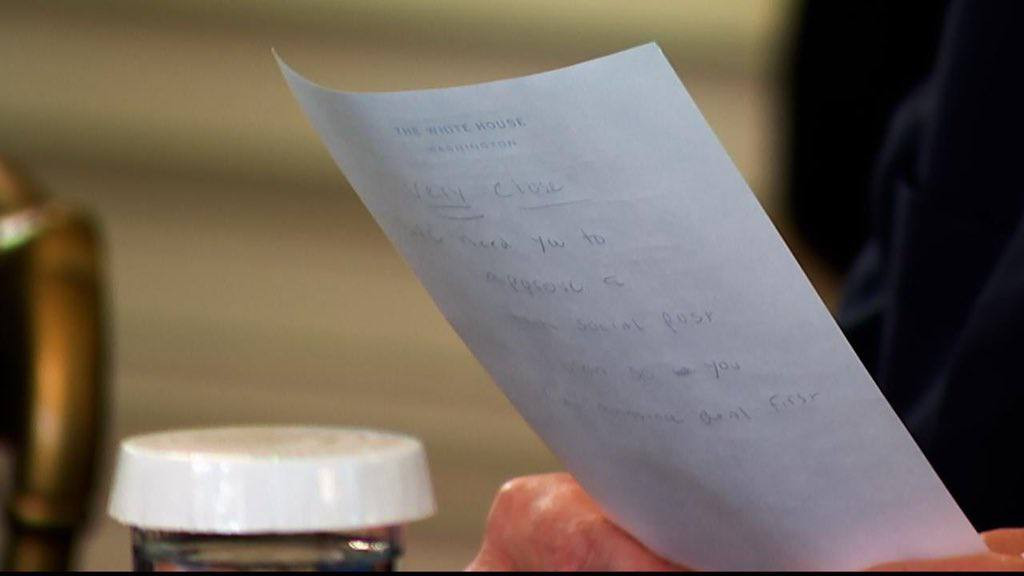 THE WHITE HOUSE
WASHINGTON
Very Close
need you to
approve a
social post
so you
deal first